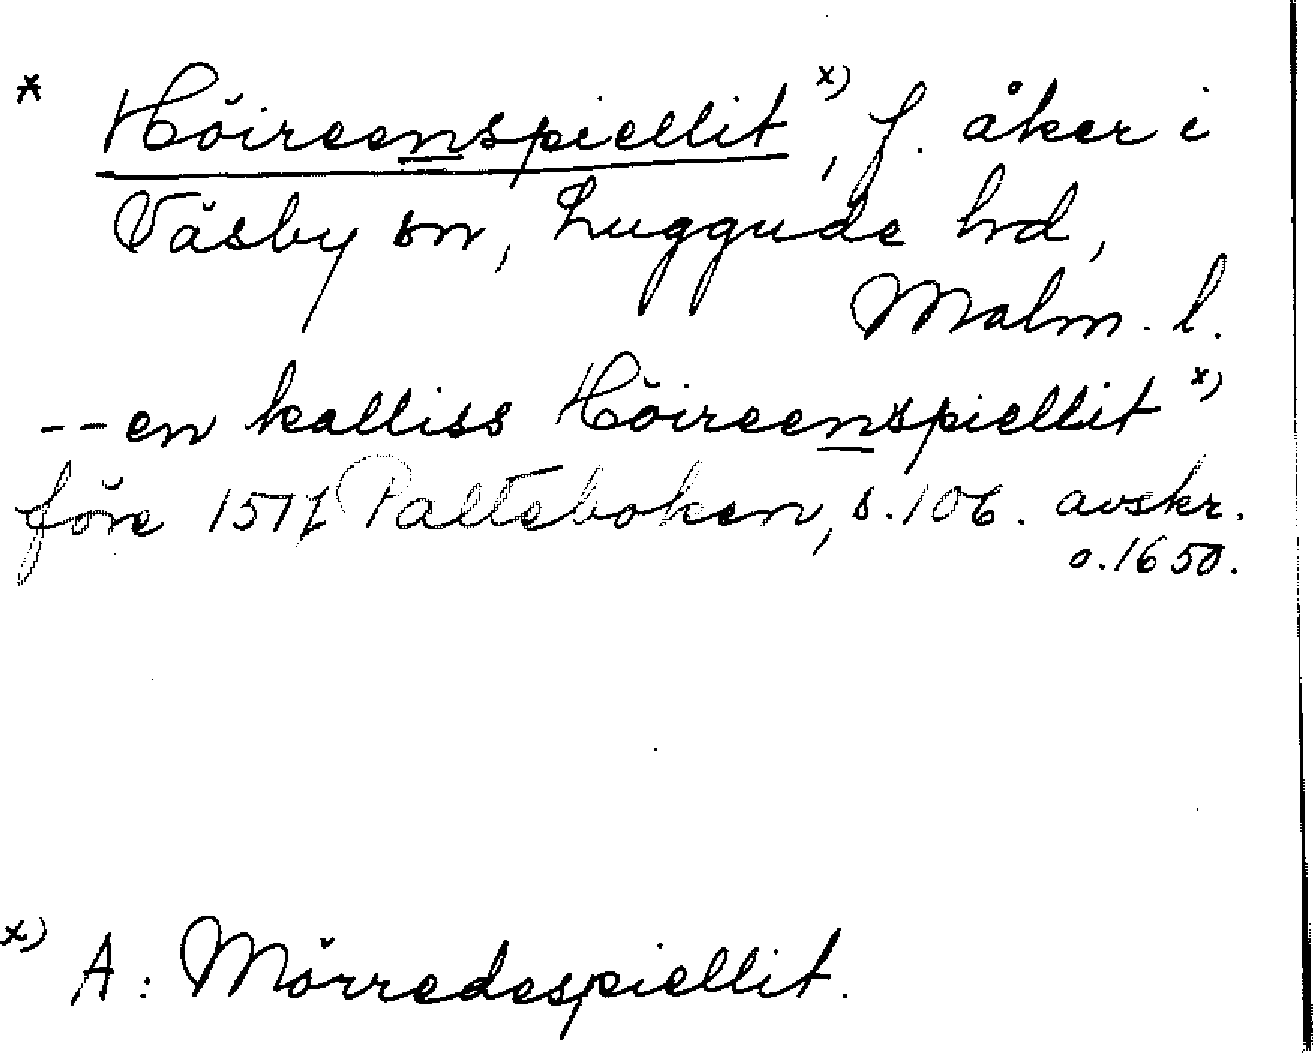 * Höireenspiellit x), f. åker i
Väsby sn, Luggude hd,
Malm. l.
-- en kalliss Höireenspiellit x)
före 1517 Palteboken, s. 106. avskr.
o. 1650.
x) A: Mörredespiellit.